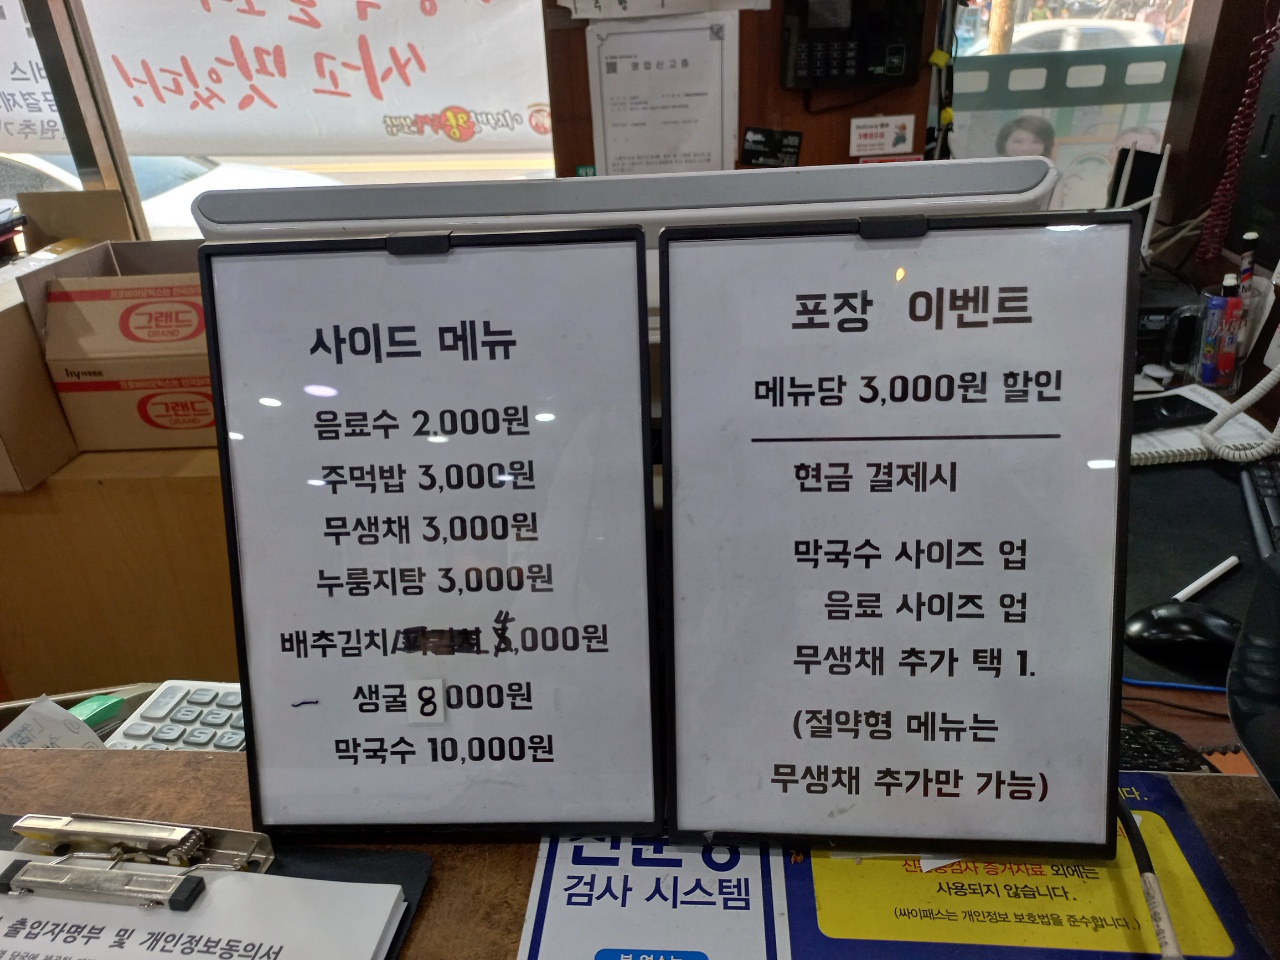 싸고 맛있다!
영업신고증
그랜드
GRAND
hy
그랜드
GRAND
사이드 메뉴
음료수 2,000원
주먹밥 3,000원
무생채 3,000원
누룽지탕 3,000원
배추김치/ 4,000원
생굴 8000원
막국수 10,000원
포장 이벤트
메뉴당 3,000원 할인
현금 결제시
막국수 사이즈 업
음료 사이즈 업
무생채 추가 택 1.
(절약형 메뉴는
무생채 추가만 가능)
검사 시스템
증거자료 외에는
사용되지 않습니다.
(싸이패스는 개인정보 보호법을 준수합니다.)
출입자명부 및 개인정보동의서